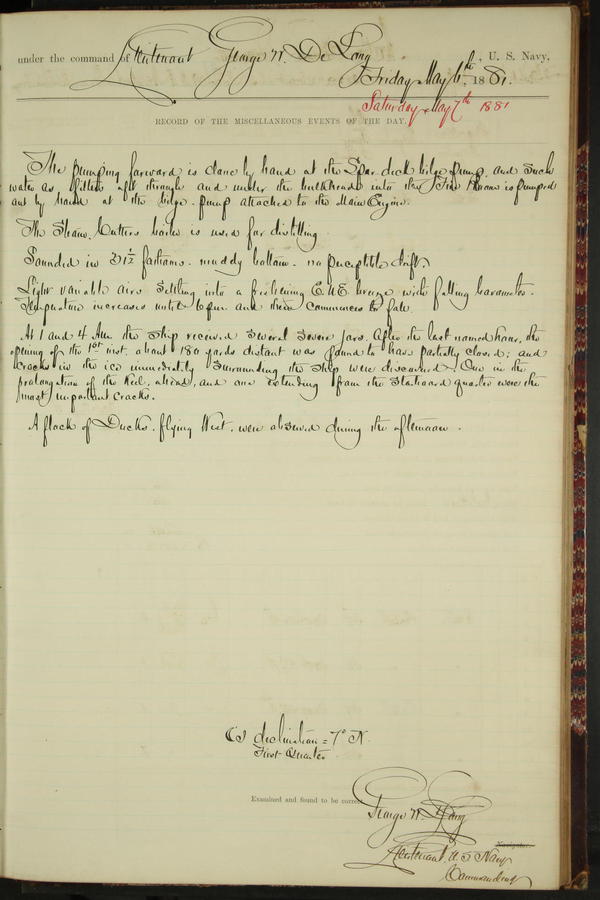 under the command of Lieutenant George W. De Long, U. S. Navy,
Friday May 6th, 1881.
Saturday May 7th 1881
RECORD OF THE MISCELLANEOUS EVENTS OF THE DAY.
The pumping forward is done by hand at the Spar deck bilge pump, and such
water as filters aft through and under the bulkheads into the Fire Room is pumped
out by hand at the bilge-pump attached to the Main Engine.
The Steam Cutters boiler is used for distilling.
Sounded in 31½ fathoms. muddy bottom. no perceptible drift.
Light variable airs settling into a freshening E.N.E. breeze with falling barometer.
Temperature increases until 6 p.m. and then commences to fall.
At 1 and 4 A.m. the ship received several severe jars. After the last named hour, the
opening of the 1st inst. about 180 yards distant was found to have partially closed; and
cracks in the ice immediately surrounding the ship were discovered. One in the
prolongation of the keel, ahead, and one extending from the starboard quarter were the
most important cracks.
A flock of Ducks. flying West. were observed during the afternoon.
declination = 7° N.
First Quarter
Examined and found to be correct.
George W. De Long
Navigator.
Lieutenant, U.S. Navy
Commanding